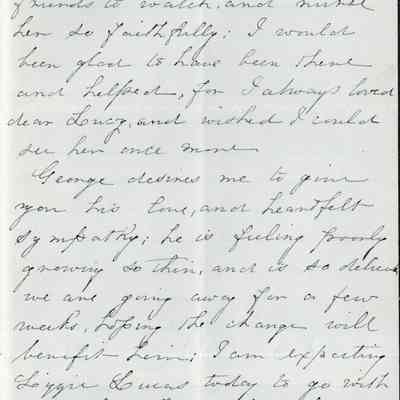 friends to watch, and nurse
her so faithfully; I would
been glad to have been there
and helped, for I always loved
dear Lucy, and wished I could
see her once more
George desires me to give
you his love, and heartfelt
sympathy; he is feeling poorly
growing so thin, and is so delicate
we are going away for a few
weeks, hoping the change will
benefit him; I am expecting
Lizzie Lucas today to go with